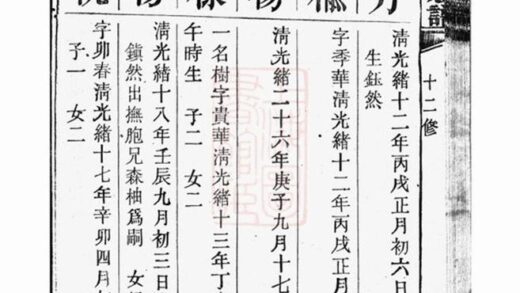 十二修
清光緒十二年丙戌正月初六日
生鈺然
字季華清光緒十二年丙戌正月
清光緒二十六年庚子九月十七
一名樹字貴華清光緒十三年丁
午時生 子二 女二
清光緒十八年壬辰九月初三日
鎮然出撫胞兄森柚爲嗣 女
字卯春清光緒十七年辛卯四月
子一 女二